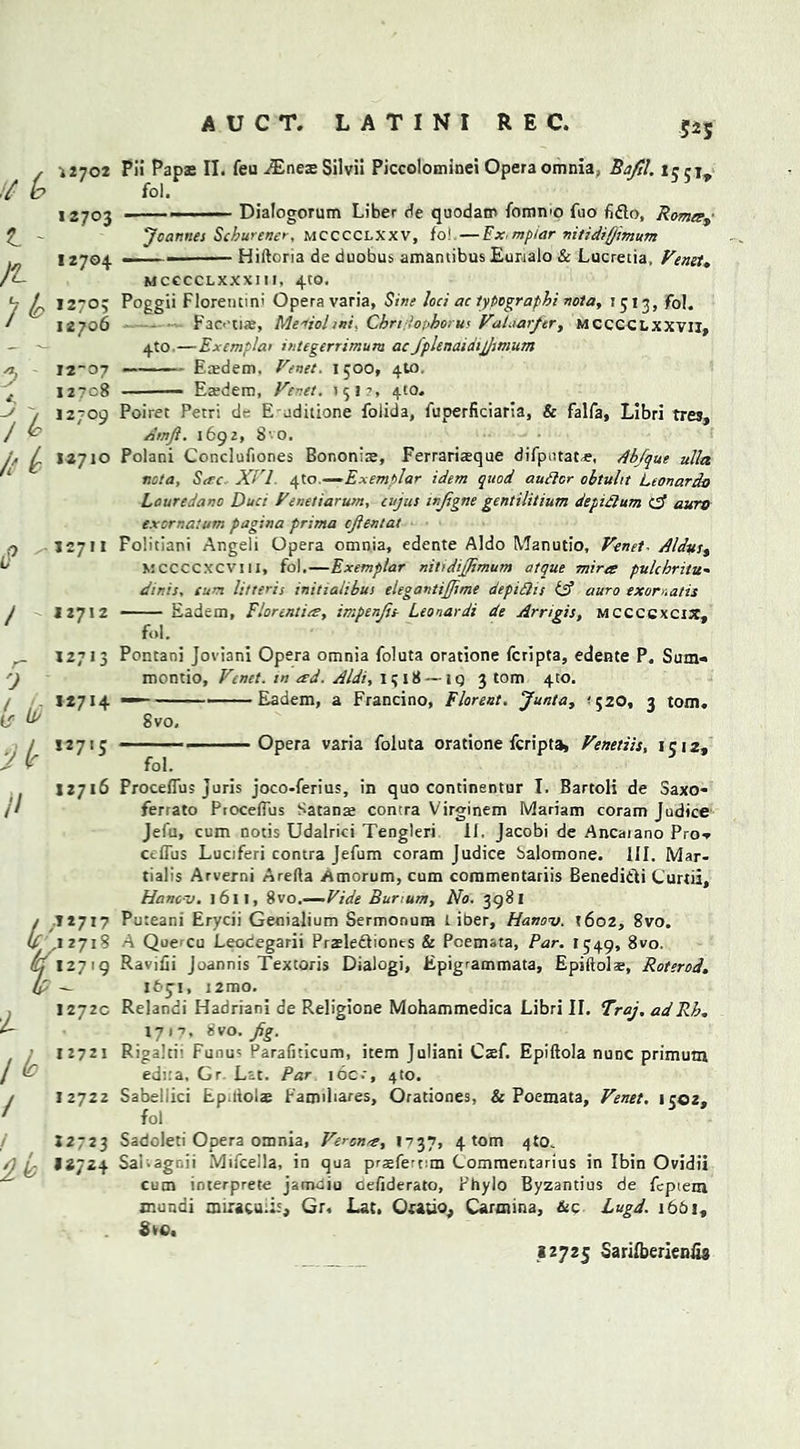 AUCT. LATINI REC. 525
12702 Pii Papæ II. ſeu Æneæ Silvii Piccolominei Opera omnia, Baſil. 1551,
fol.
12703 ——— Dialogorum Liber de quodam ſomnio ſuo ficto, Romæ,
Joannes Schurener, MCCCCLXXV, fol.—Exemplar nitidiſſimum
12704 ——— Hiſtoria de duobus amantibus Eurialo & Lucretia, Venet.
MCCCCLXXXIII, 4to.
12705 Poggii Florentini Opera varia, Sine loci ac typographi nota, 1513, fol.
12706 ——— Facetiæ, Mediolani, Chriſtophorus Valdarfer, MCCCCLXXVII,
4to.—Exemplar integerrimum ac ſplendidiſſimum
12707 ——— Eædem, Venet. 1500, 4to.
12708 ——— Eædem, Venet. 1517, 4to.
12709 Poiret Petri de Eruditione ſolida, ſuperficiaria, & falſa, Libri tres,
Amſt. 1692, 8vo.
12710 Polani Concluſiones Bononiæ, Ferrariæque diſputatæ, Abſque ulla
nota, Sæc. XVI. 4to.—Exemplar idem quod auctor obtulit Leonardo
Lauredano Duci Venetiarum, cujus inſigne gentilitium depictum & auro
exornatum pagina prima oſtentat
12711 Politiani Angeli Opera omnia, edente Aldo Manutio, Venet. Aldus,
MCCCCXCVIII, fol.—Exemplar nitidiſſimum atque miræ pulchritu-
dinis, cum litteris initialibus elegantiſſime depictis & auro exornatis
12712 —— Eadem, Florentiæ, impenſis Leonardi de Arrigis, MCCCCXCIX,
fol.
12713 Pontani Joviani Opera omnia ſoluta oratione ſcripta, edente P. Sum-
montio, Venet. in æd. Aldi, 1518—19 3 tom 4to.
12714 ——— Eadem, a Francino, Florent. Junta, 1520, 3 tom.
8vo.
12715 ——— Opera varia ſoluta oratione ſcripta, Venetiis, 1512,
fol.
12716 Proceſſus Juris joco-ſerius, in quo continentur I. Bartoli de Saxo-
ferrato Proceſſus Satanæ contra Virginem Mariam coram Judice
Jeſu, cum notis Udalrici Tengleri II. Jacobi de Ancarano Pro-
ceſſus Luciferi contra Jeſum coram Judice Salomone. III. Mar-
tialis Arverni Areſta Amorum, cum commentariis Benedicti Curtii,
Hanov. 1611, 8vo.—Vide Burium, No. 3981
12717 Puteani Erycii Genialium Sermonum Liber, Hanov. 1602, 8vo.
12718 A Quercu Leodegarii Prælectiones & Poemata, Par. 1549, 8vo.
12719 Raviſii Joannis Textoris Dialogi, Epigrammata, Epiſtolæ, Roterod.
1651, 12mo.
12720 Relandi Hadriani de Religione Mohammedica Libri II. Traj. ad Rh.
1717, 8vo. fig.
12721 Rigaltii Funus Paraſiticum, item Juliani Cæſ. Epiſtola nunc primum
edita, Gr. Lat. Par. 1601, 4to.
12722 Sabellici Epiſtolæ Familiares, Orationes, & Poemata, Venet. 1502,
fol
12723 Sadoleti Opera omnia, Veronæ, 1737, 4 tom 4to.
12724 Salvagnii Miſcella, in qua præfertim Commentarius in Ibin Ovidii
cum interprete jamdiu deſiderato, Phylo Byzantius de ſeptem
mundi miraculis, Gr. Lat. Oratio, Carmina, &c Lugd. 1661,
8vo.
12725 Sariſberienſis